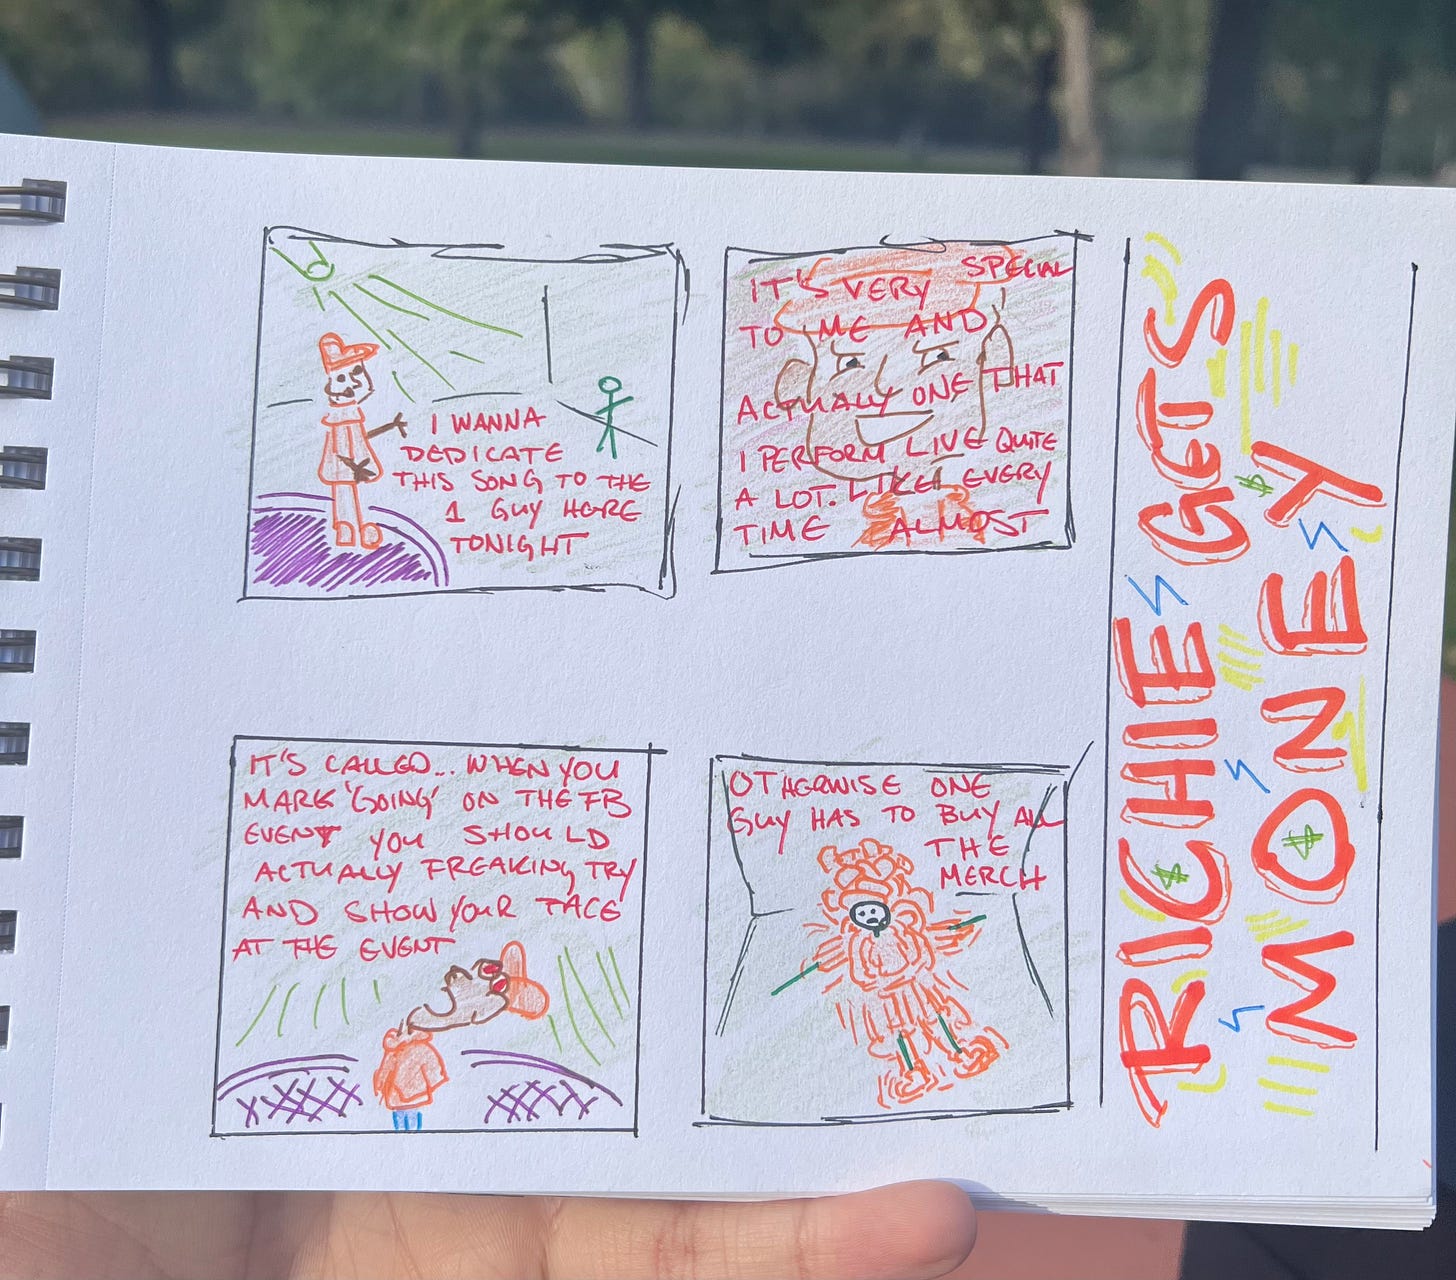 I WANNA
DEDICATE
THIS SONG TO THE
1 GUY HERE
TONIGHT
IT'S VERY SPECIAL
TO ME AND
ACTUALLY ONE THAT
I PERFORM LIVE QUITE
A LOT. LIKE EVERY
TIME ALMOST
IT'S CALLED... WHEN YOU
MARK 'GOING' ON THE FB
EVENT YOU SHOULD
ACTUALLY FREAKING TRY
AND SHOW YOUR FACE
AT THE EVENT
OTHERWISE ONE
GUY HAS TO BUY ALL
THE
MERCH
RICHIE GETS
MONEY